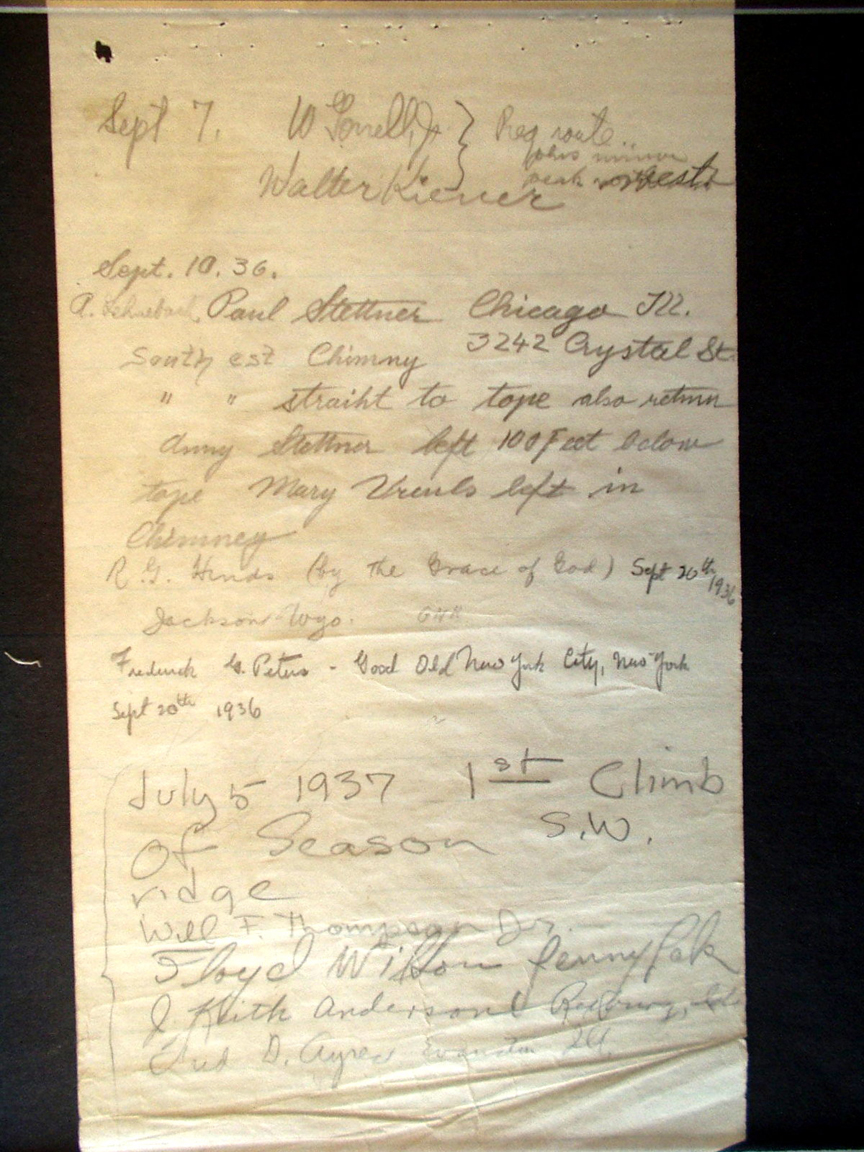 Sept 7. W Gorrell, Jr. } Reg route
minor
Walter Kiener peak west
Sept. 10. 36.
A. Paul Stettner Chicago Ill.
South est Chimny 3242 Crystal St.
" " straiht to tope also return
Anny Stettner left 100 Feet below
tope Mary left in
Chimney
R.G. Hinds (by the Grace of God) Sept 20th 1936
Jackson Wyo.
Frederick G. Peters - Good Old New York City, New York
Sept 20th 1936
July 5 1937 1st Climb
Of Season S.W.
ridge
Will F. Thompson Jr.
Floyd Wilson
J. Keith Anderson
D. Ayres Evanston Ill.